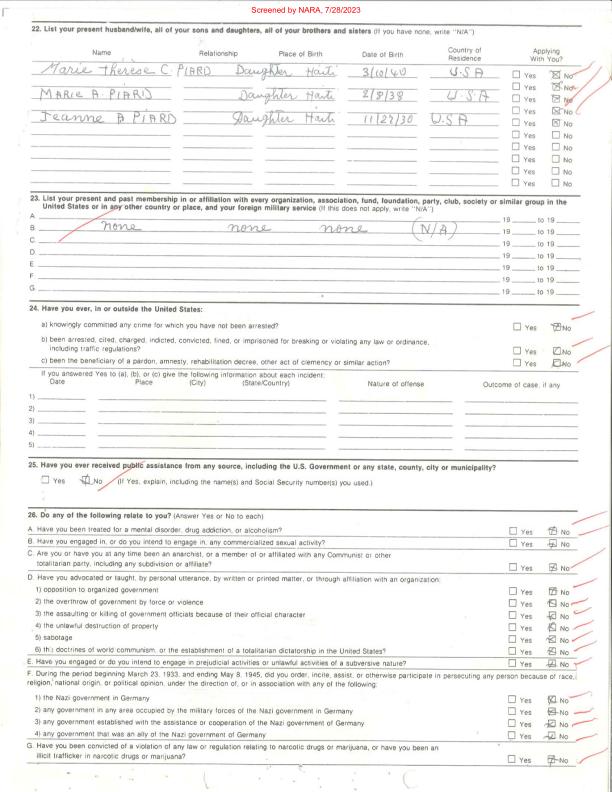 Screened by NARA, 7/28/2023
22. List your present husband/wife, all of your sons and daughters, all of your brothers and sisters (If you have none, write "N/A")
Name Relationship Place of Birth Date of Birth Country of Residence Applying With You?
Marie Therese C. PIARD Daughter Haiti 3/10/40 U.S.A ☐ Yes ☒ No
MARIE A. PIARD Daughter Haiti 2/8/38 U.S.A ☐ Yes ☒ No
Jeanne B PIARD Daughter Haiti 11/27/30 U.S.A ☐ Yes ☒ No
☐ Yes ☒ No
☐ Yes ☒ No
☐ Yes ☐ No
☐ Yes ☐ No
☐ Yes ☐ No
☐ Yes ☐ No
☐ Yes ☐ No
23. List your present and past membership in or affiliation with every organization, association, fund, foundation, party, club, society or similar group in the
United States or in any other country or place, and your foreign military service (If this does not apply, write "N/A")
A. 19 to 19
B. none none none (N/A) 19 to 19
C. 19 to 19
D. 19 to 19
E. 19 to 19
F. 19 to 19
G. 19 to 19
24. Have you ever, in or outside the United States:
a) knowingly committed any crime for which you have not been arrested? ☐ Yes ☒ No
b) been arrested, cited, charged, indicted, convicted, fined, or imprisoned for breaking or violating any law or ordinance,
including traffic regulations? ☐ Yes ☒ No
c) been the beneficiary of a pardon, amnesty, rehabilitation decree, other act of clemency or similar action? ☐ Yes ☒ No
If you answered Yes to (a), (b), or (c) give the following information about each incident:
Date Place (City) (State/Country) Nature of offense Outcome of case, if any
1)
2)
3)
4)
5)
25. Have you ever received public assistance from any source, including the U.S. Government or any state, county, city or municipality?
☐ Yes ☒ No (If Yes, explain, including the name(s) and Social Security number(s) you used.)
26. Do any of the following relate to you? (Answer Yes or No to each)
A. Have you been treated for a mental disorder, drug addiction, or alcoholism? ☐ Yes ☒ No
B. Have you engaged in, or do you intend to engage in, any commercialized sexual activity? ☐ Yes ☒ No
C. Are you or have you at any time been an anarchist, or a member of or affiliated with any Communist or other
totalitarian party, including any subdivision or affiliate? ☐ Yes ☒ No
D. Have you advocated or taught, by personal utterance, by written or printed matter, or through affiliation with an organization:
1) opposition to organized government ☐ Yes ☒ No
2) the overthrow of government by force or violence ☐ Yes ☒ No
3) the assaulting or killing of government officials because of their official character ☐ Yes ☒ No
4) the unlawful destruction of property ☐ Yes ☒ No
5) sabotage ☐ Yes ☒ No
6) the doctrines of world communism, or the establishment of a totalitarian dictatorship in the United States? ☐ Yes ☒ No
E. Have you engaged or do you intend to engage in prejudicial activities or unlawful activities of a subversive nature? ☐ Yes ☒ No
F. During the period beginning March 23, 1933, and ending May 8, 1945, did you order, incite, assist, or otherwise participate in persecuting any person because of race,
religion, national origin, or political opinion, under the direction of, or in association with any of the following:
1) the Nazi government in Germany ☐ Yes ☒ No
2) any government in any area occupied by the military forces of the Nazi government in Germany ☐ Yes ☒ No
3) any government established with the assistance or cooperation of the Nazi government of Germany ☐ Yes ☒ No
4) any government that was an ally of the Nazi government of Germany ☐ Yes ☒ No
G. Have you been convicted of a violation of any law or regulation relating to narcotic drugs or marijuana, or have you been an
illicit trafficker in narcotic drugs or marijuana? ☐ Yes ☒ No